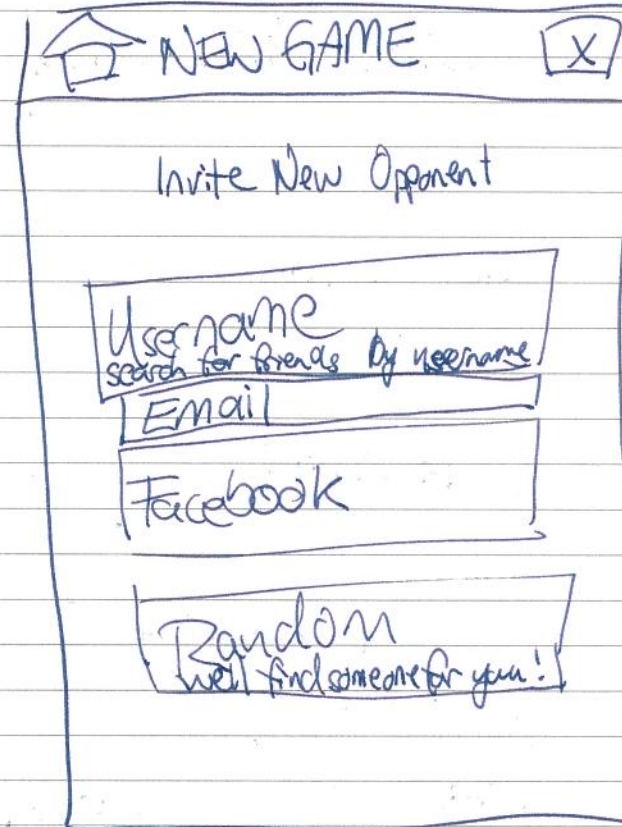 NEW GAME X
Invite New Opponent
Username
search for friends by username
Email
Facebook
Random
we'll find someone for you!